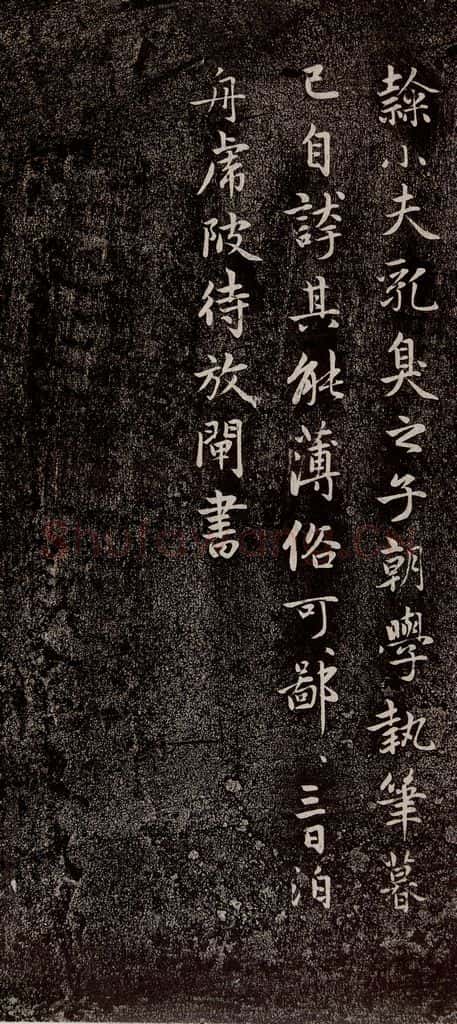 隷小夫乳臭之子朝學執筆暮
已自誇其能薄俗可〻鄙〻三日泊
舟虎陂待放閘書